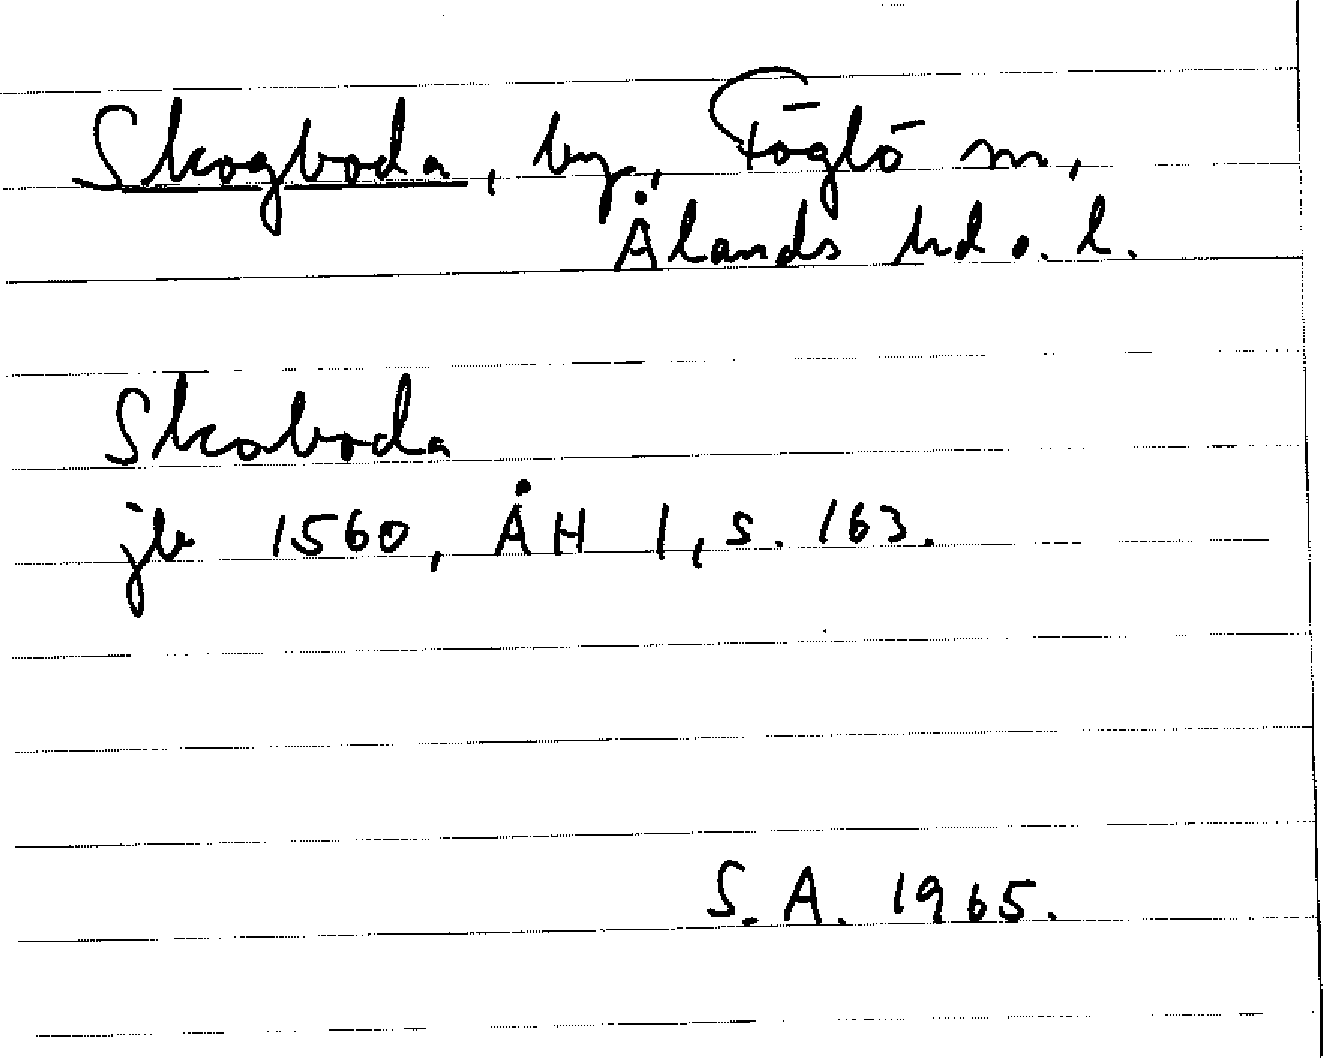 Skogboda, by, Föglö sn,
Ålands hd o. l.
Skoboda
jb 1560, ÅH 1, s. 163.
S. A. 1965.